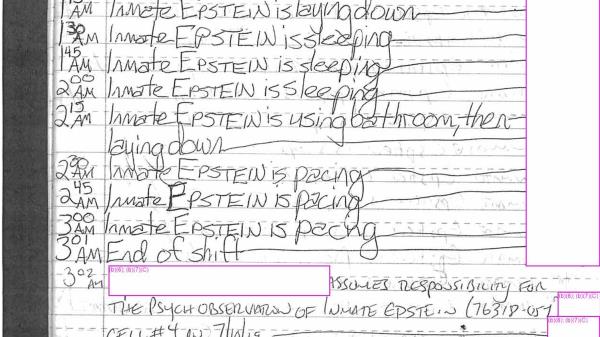 1 15 AM Inmate EPSTEIN is laying down
1 30 AM Inmate EPSTEIN is sleeping
1 45 AM Inmate EPSTEIN is sleeping
2 00 AM Inmate EPSTEIN is sleeping
2 15 AM Inmate EPSTEIN is using bathroom, then
laying down
2 30 AM Inmate EPSTEIN is pacing
2 45 AM Inmate EPSTEIN is pacing
3 00 AM Inmate EPSTEIN is pacing
3 01 AM End of shift
3 02 AM (b)(6); (b)(7)(C) ASSUMES RESPONSIBILITY FOR
THE PSYCH OBSERVATION OF INMATE EPSTEIN (76318-054 (b)(6); (b)(7)(C)
CELL #4 ON (b)(6); (b)(7)(C)